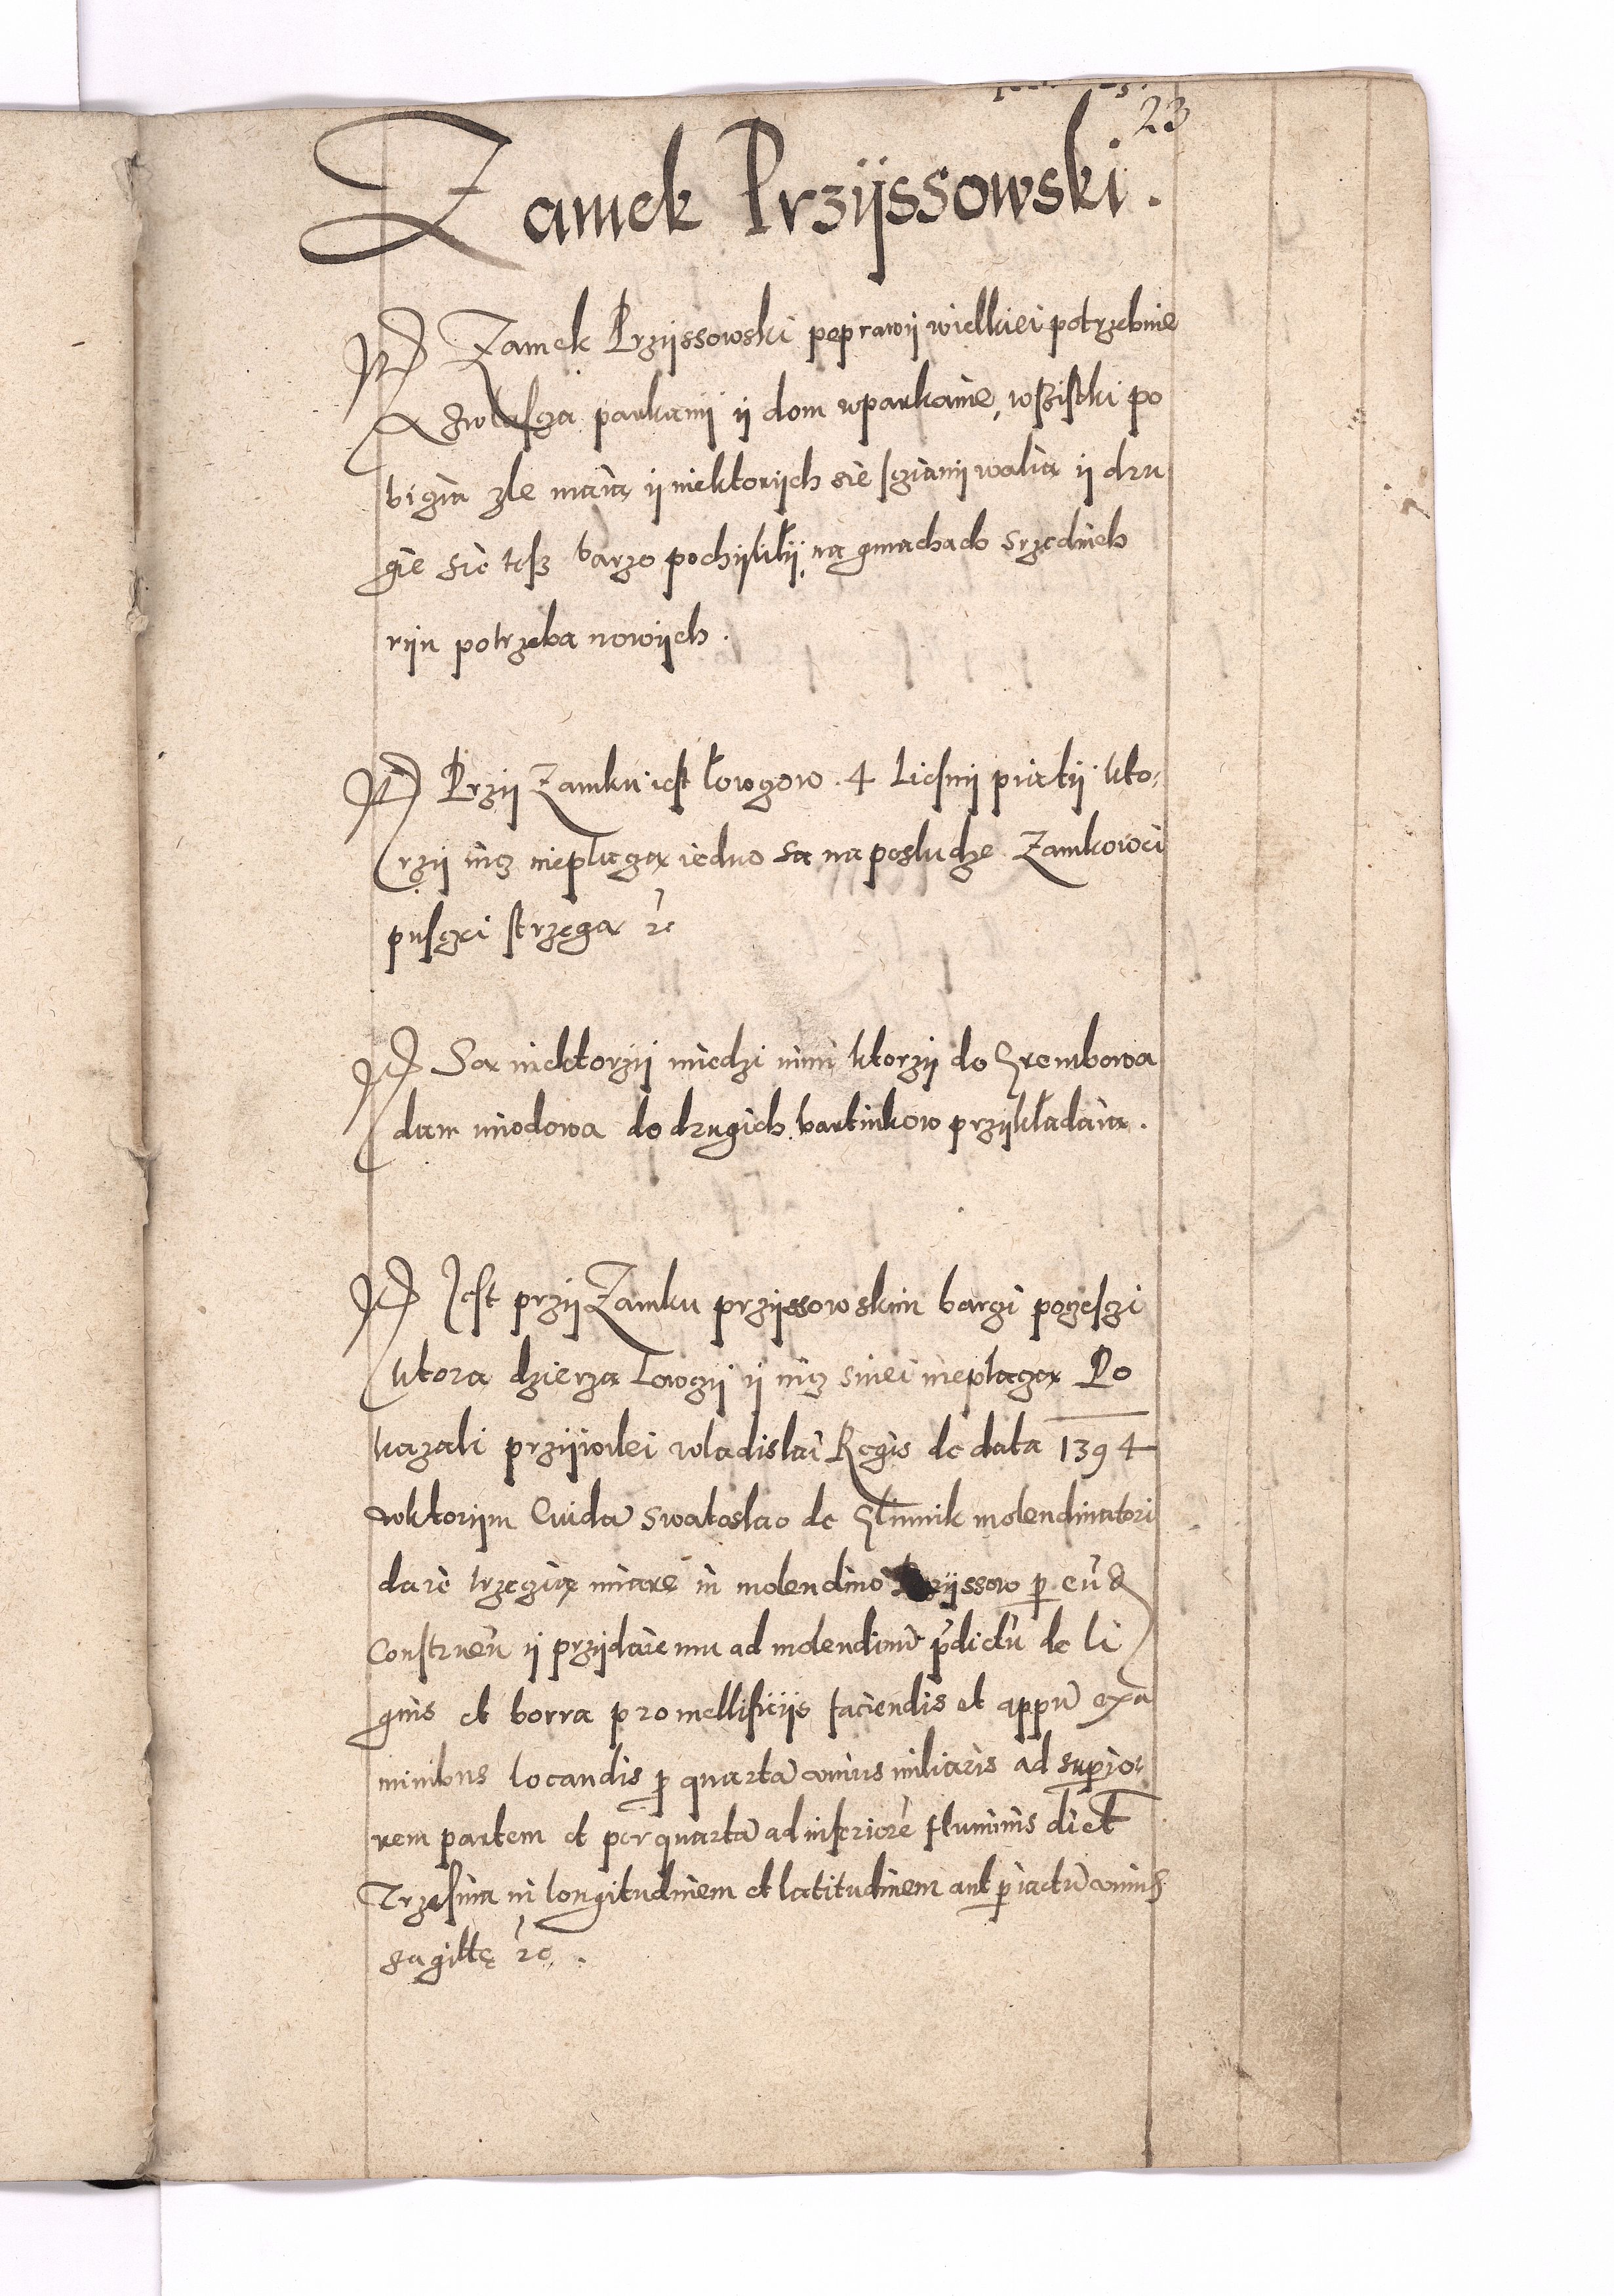 23
Zamek Przÿssowski.
Zamek Przÿssowski poprawÿ wielkiei potrzebuie
zwlascza parkanÿ ÿ dom wparkanie, wszistki po
bigia zle maią ÿ niektorijch sie scianÿ walią ÿ dru
gie sie tesz barzo pochijlilÿ, na gmachach srzednich
rÿn potrzeba nowÿch.
Przÿ Zamku iest łowczow. 4 Liesnÿ piątÿ kto:
rzÿ nicz nieplaczą iedno są na posludze Zamkowei
pusczei strzegą &c
Są niektorzÿ miedzi nimi ktorzÿ do Srembowa
dan miodową do drugich bartnikow przÿkładaią.
Jest przÿ Zamku przÿssowskim barci poczesci
ktorą dzierzą Lowczÿ ÿ nicz snieÿ nieplaczą Po
kazali przÿwilei wladislai Regis de data 1394
wktorÿm Cuidã Swatoslao de Slimnik molendinatori
daie trzecią miarę in molendino Przÿssow p eũd
Construeñ ÿ przÿdaie mu ad molendinũ pdictũ de li
gnis et borra pro mellificÿs faciendis et appũ exa
minibus locandis p quartã unius miliaris ad superio:
rem partem et per quartã ad inferiorẽ fluminis dict
Trzesnia in longitudinem et latitudinem ant p iactũ unius
sagittę &c.